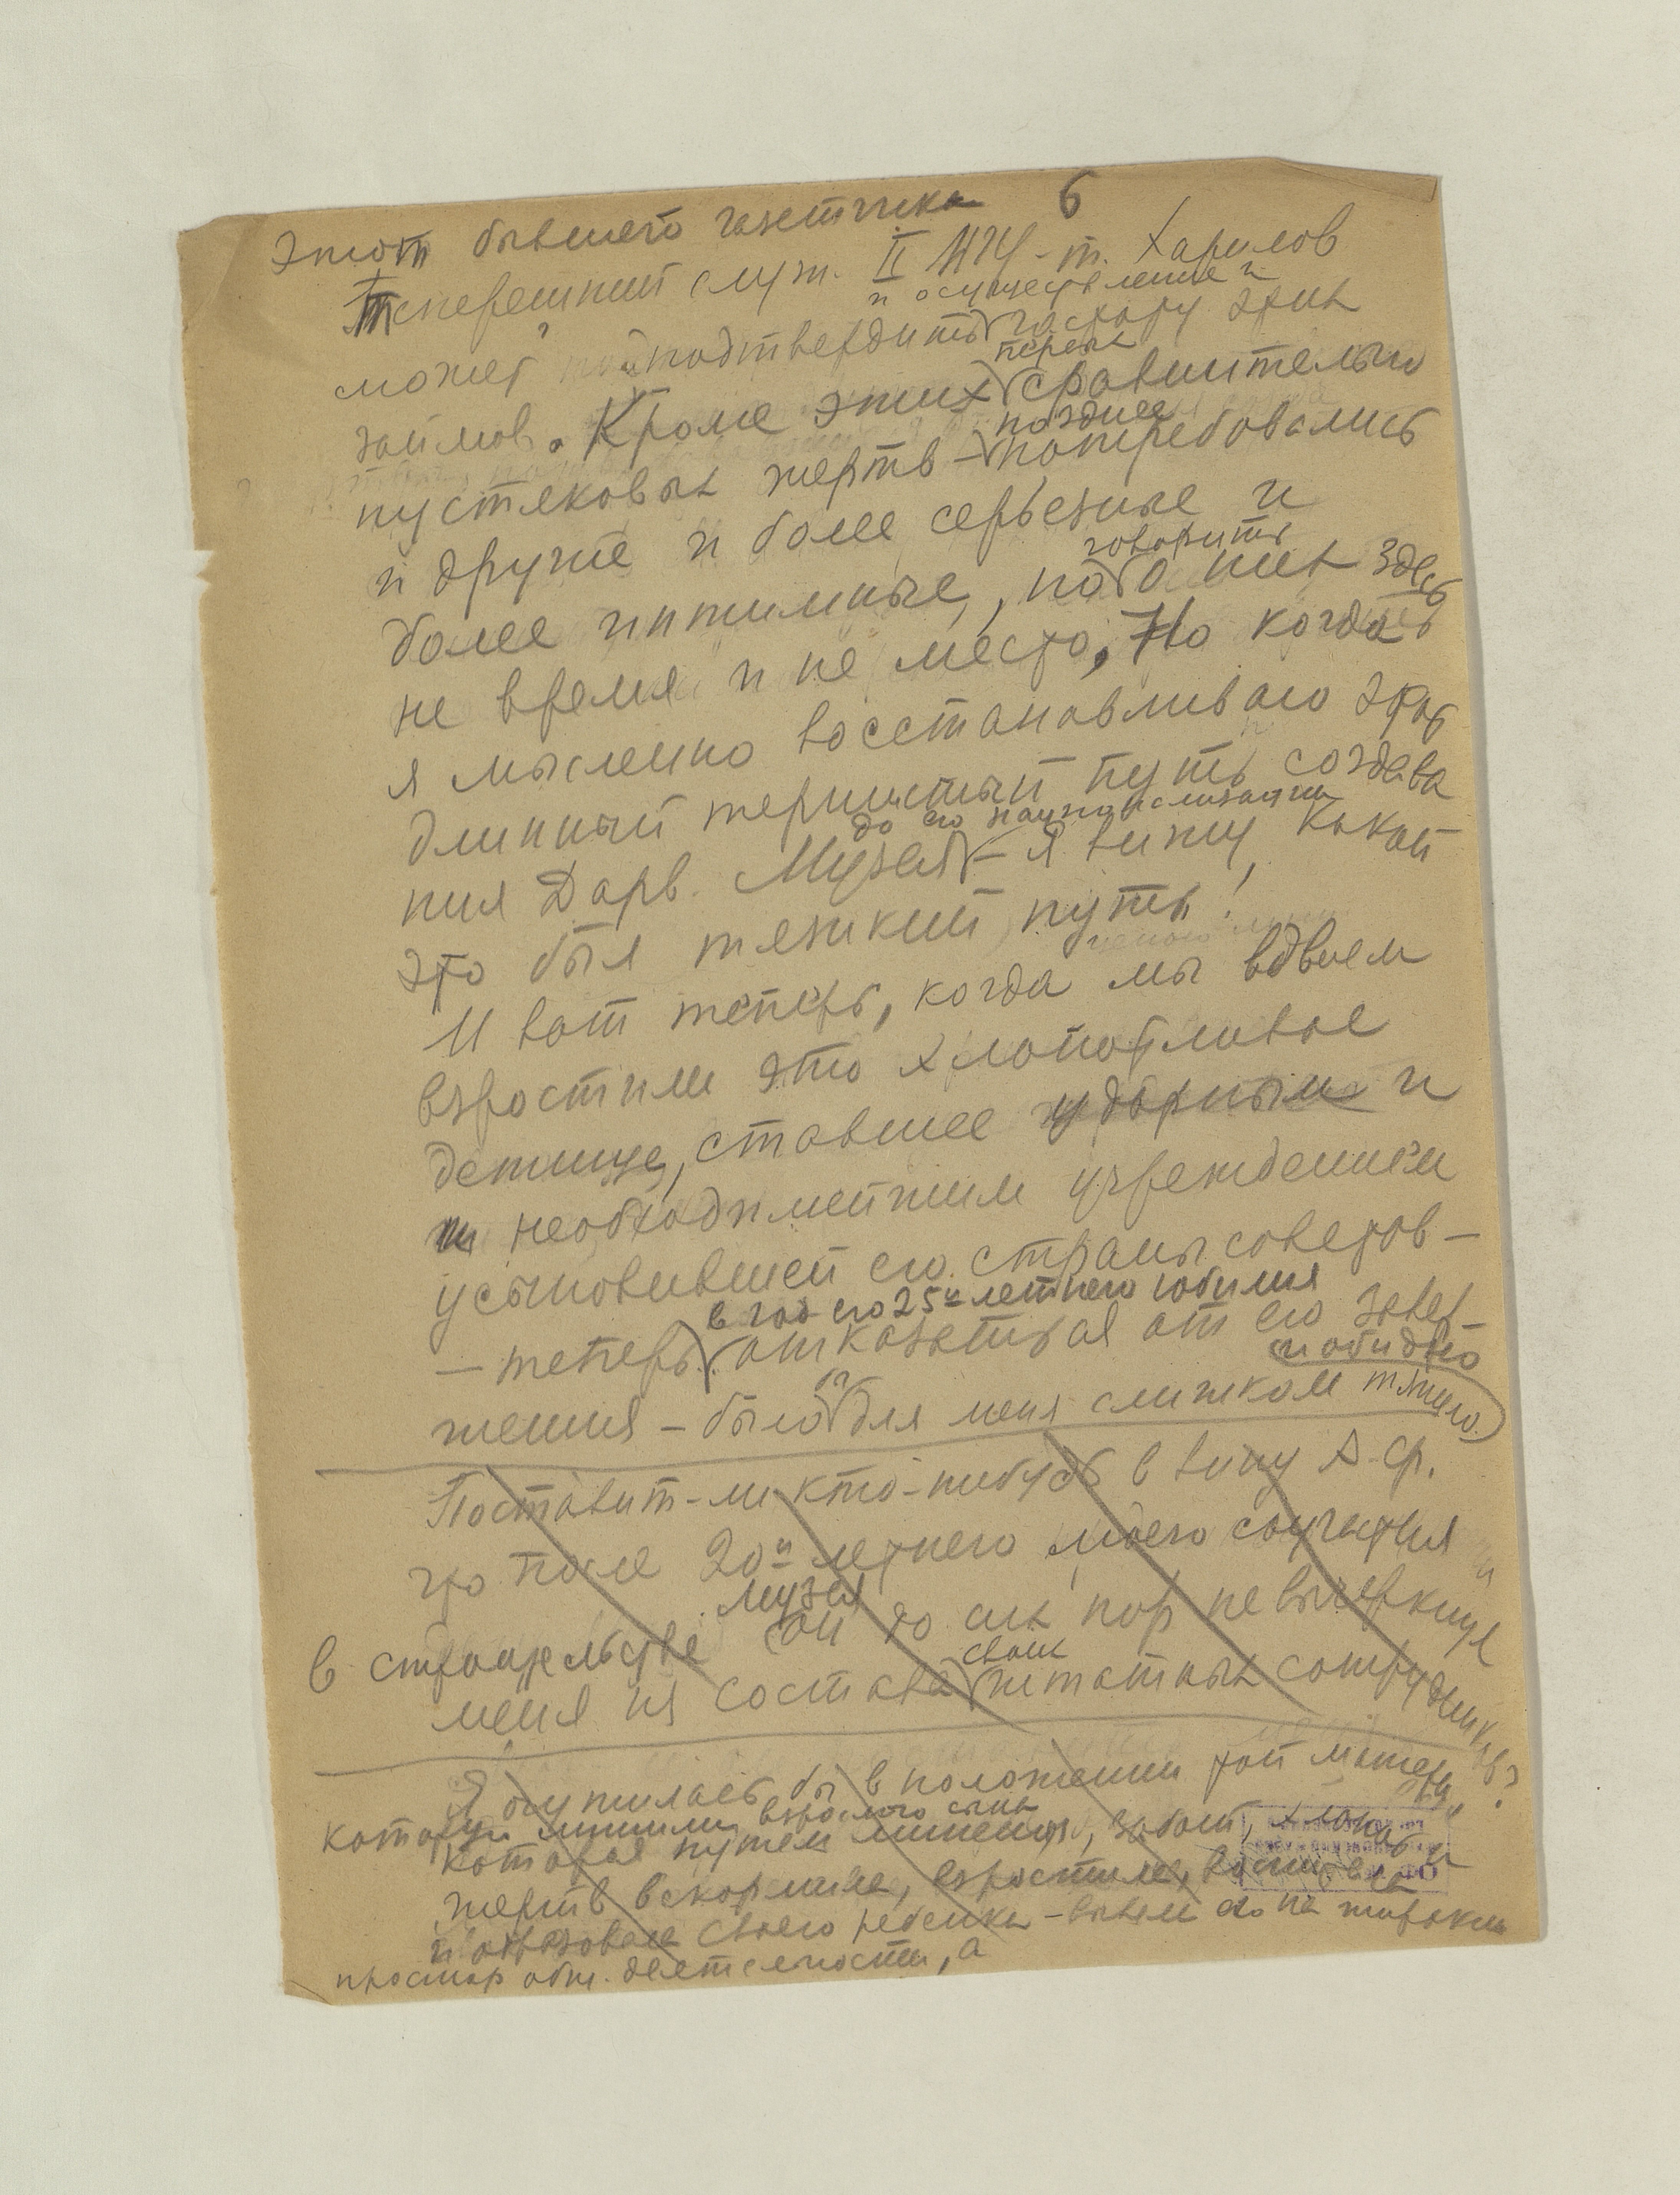 Этот бывшего газетчика 6
Теперешний служ. II МГУ - т. Харилов
и осуществление и
может подтвердить частоту этих
займов. Кроме этих первых сравнительно
пустяковых жертв - позднее потребовались
и другие и более серьезные и
более интимные, но говорить о них здесь
не время и не место, Но когда
я мысленно восстанавливаю этот
длинный тернистый путь создава
ния Дарв. Музея до его национализации - я вижу, какой
это был тяжкий путь!
И вот теперь, когда мы вдвоем
взростили это хлопотливое
детище, ставшее ударным и
необходимейшим учреждением
усыновившей его страны советов -
- теперь в год его 25и летнего юбилея отказаться от его завер-
шения - было бы для меня слишком тяжело и обидно
Поставит-ли кто-нибудь в вину А. Ф.
что после 20и летнего моего соучастия
в строительстве музея он до сих пор не вычеркнул
меня из состава своих штатных сотрудников?
Я очутилась бы в положении той матери,
которую лишили взрослого сына
которая путем лишений, забот, хлопот и
жертв вскормила, взростила, воспитала
и образовала своего ребенка - вывела его на широкий
простор общ. деятельности, а